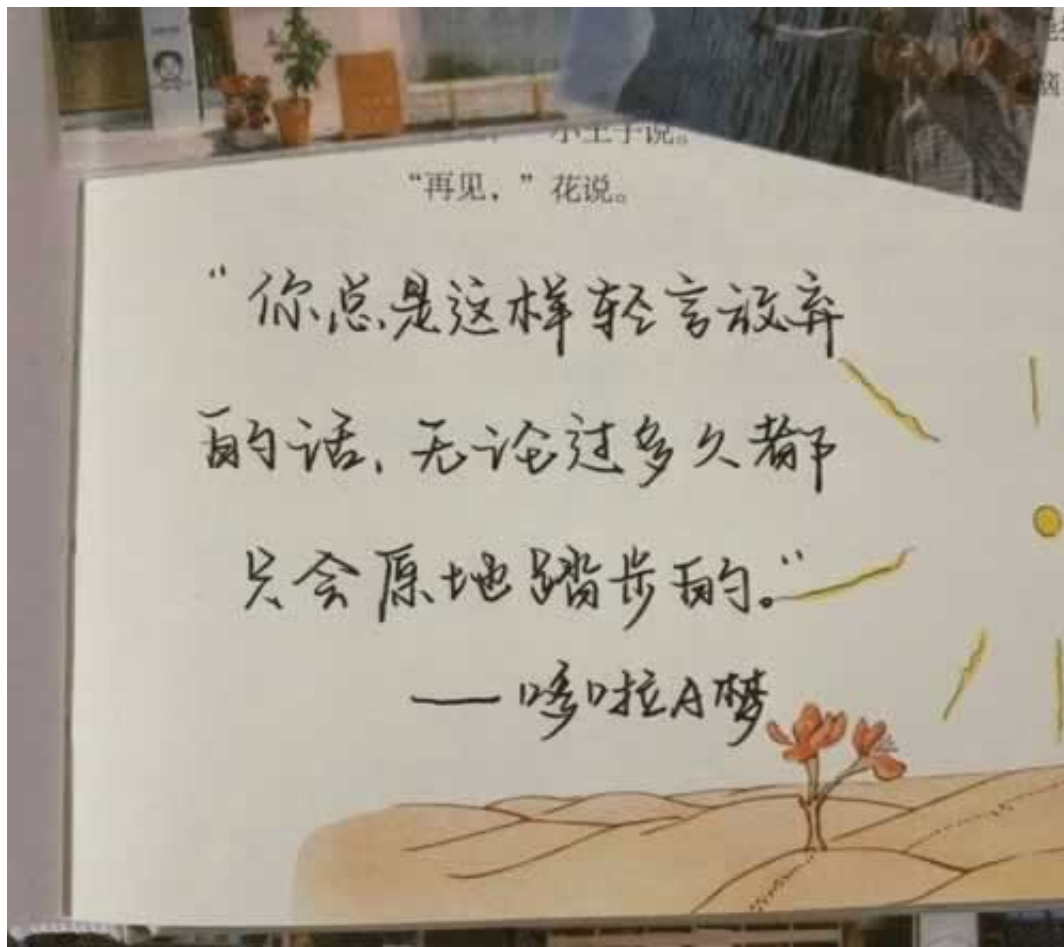 小王子说。
“再见,”花说。
“你总是这样轻言放弃
的话,无论过多久都
只会原地踏步的。”
——哆啦A梦